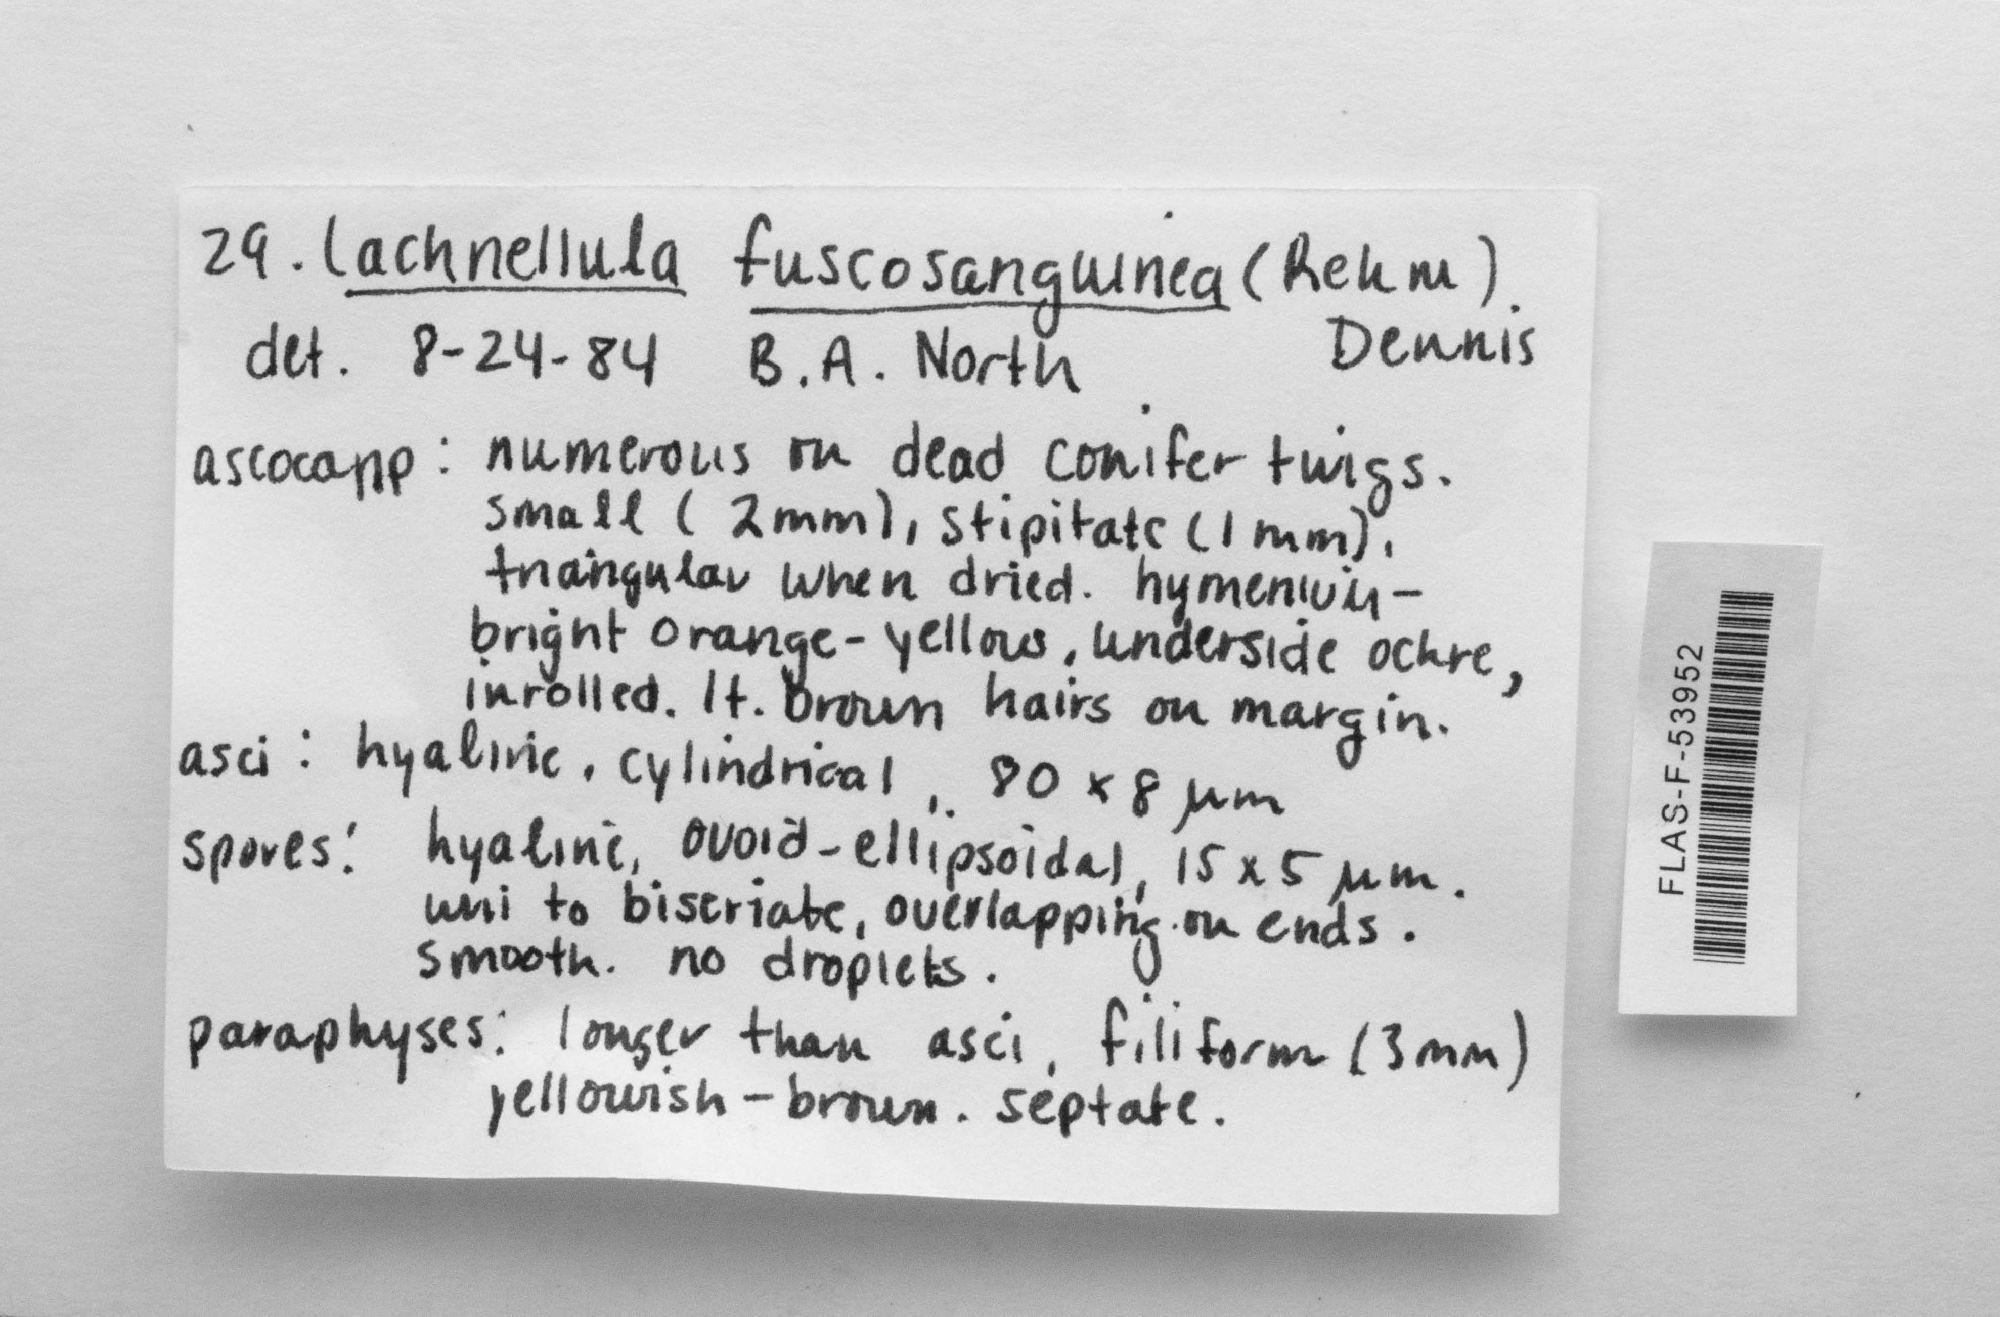 29. Lachnellula fuscosanguinea (Rehm)
Dennis
det. 8-24-84 B.A. North
ascocarp: numerous on dead conifer twigs.
small (2mm), stipitate (1mm),
triangular when dried. hymenium-
bright orange-yellow, underside ochre,
inrolled. lt. brown hairs on margin.
asci: hyaline, cylindrical, 80 x 8 µm
spores: hyaline, ovoid-ellipsoidal, 15 x 5 µm.
uni to biseriate, overlapping on ends.
smooth. no droplets.
paraphyses: longer than asci, filiform (3mm)
yellowish-brown. septate.
FLAS-F-53952